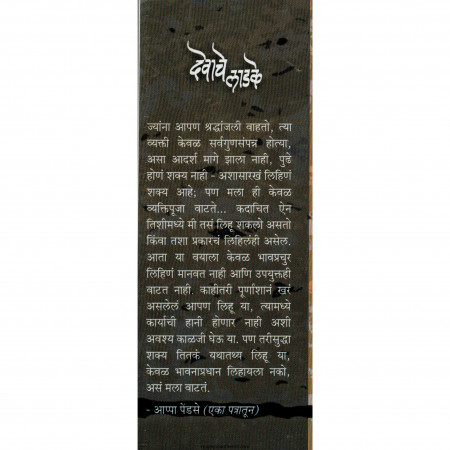 देवाचे लाडके
ज्यांना आपण श्रद्धांजली वाहतो, त्या
व्यक्ती केवळ सर्वगुणसंपन्न होत्या,
असा आदर्श मागे झाला नाही, पुढे
होणं शक्य नाही - अशासारखं लिहिणं
शक्य आहे; पण मला ही केवळ
व्यक्तिपूजा वाटते... कदाचित ऐन
तिशीमध्ये मी तसं लिहू शकलो असतो
किंवा तशा प्रकारचं लिहिलेंही असेल.
आता या वयाला केवळ भावप्रचुर
लिहिणं मानवत नाही आणि उपयुक्तही
वाटत नाही. काहीतरी पूर्णांशानं खरं
असलेलं आपण लिहू या, त्यामध्ये
कार्याची हानी होणार नाही अशी
अवश्य काळजी घेऊ या. पण तरीसुद्धा
शक्य तितकं यथातथ्य लिहू या,
केवळ भावनाप्रधान लिहायला नको,
असं मला वाटतं.
- आप्पा पेंडसे (एका पत्रातून)